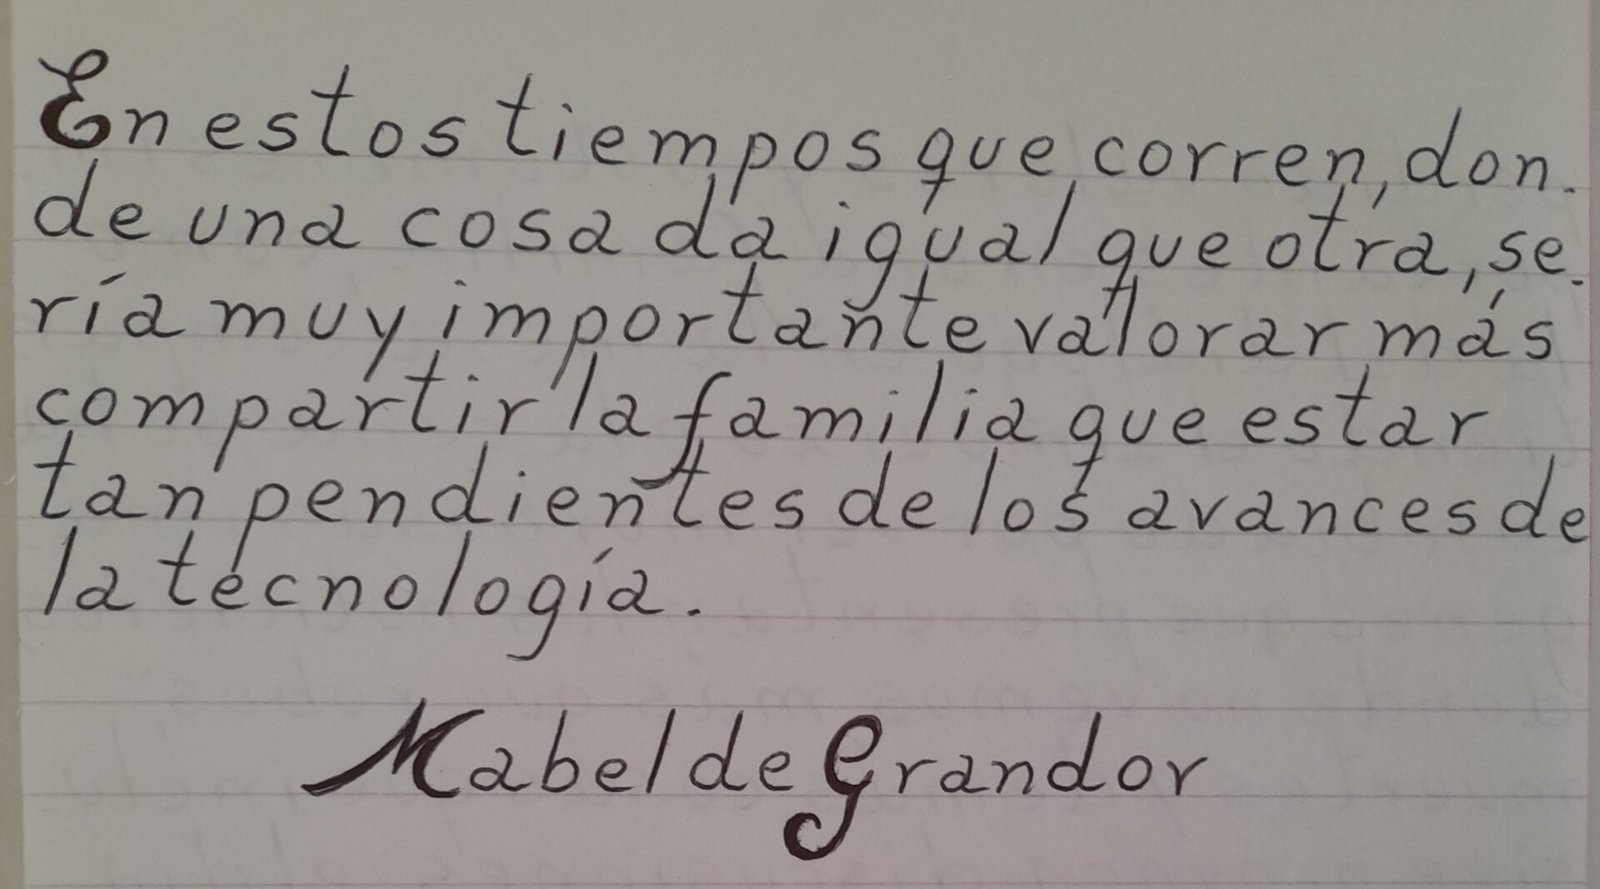 En estos tiempos que corren, don-
de una cosa da igual que otra, se-
ría muy importante valorar más
compartir la familia que estar
tan pendientes de los avances de
la tecnología.
Mabel de Grandor